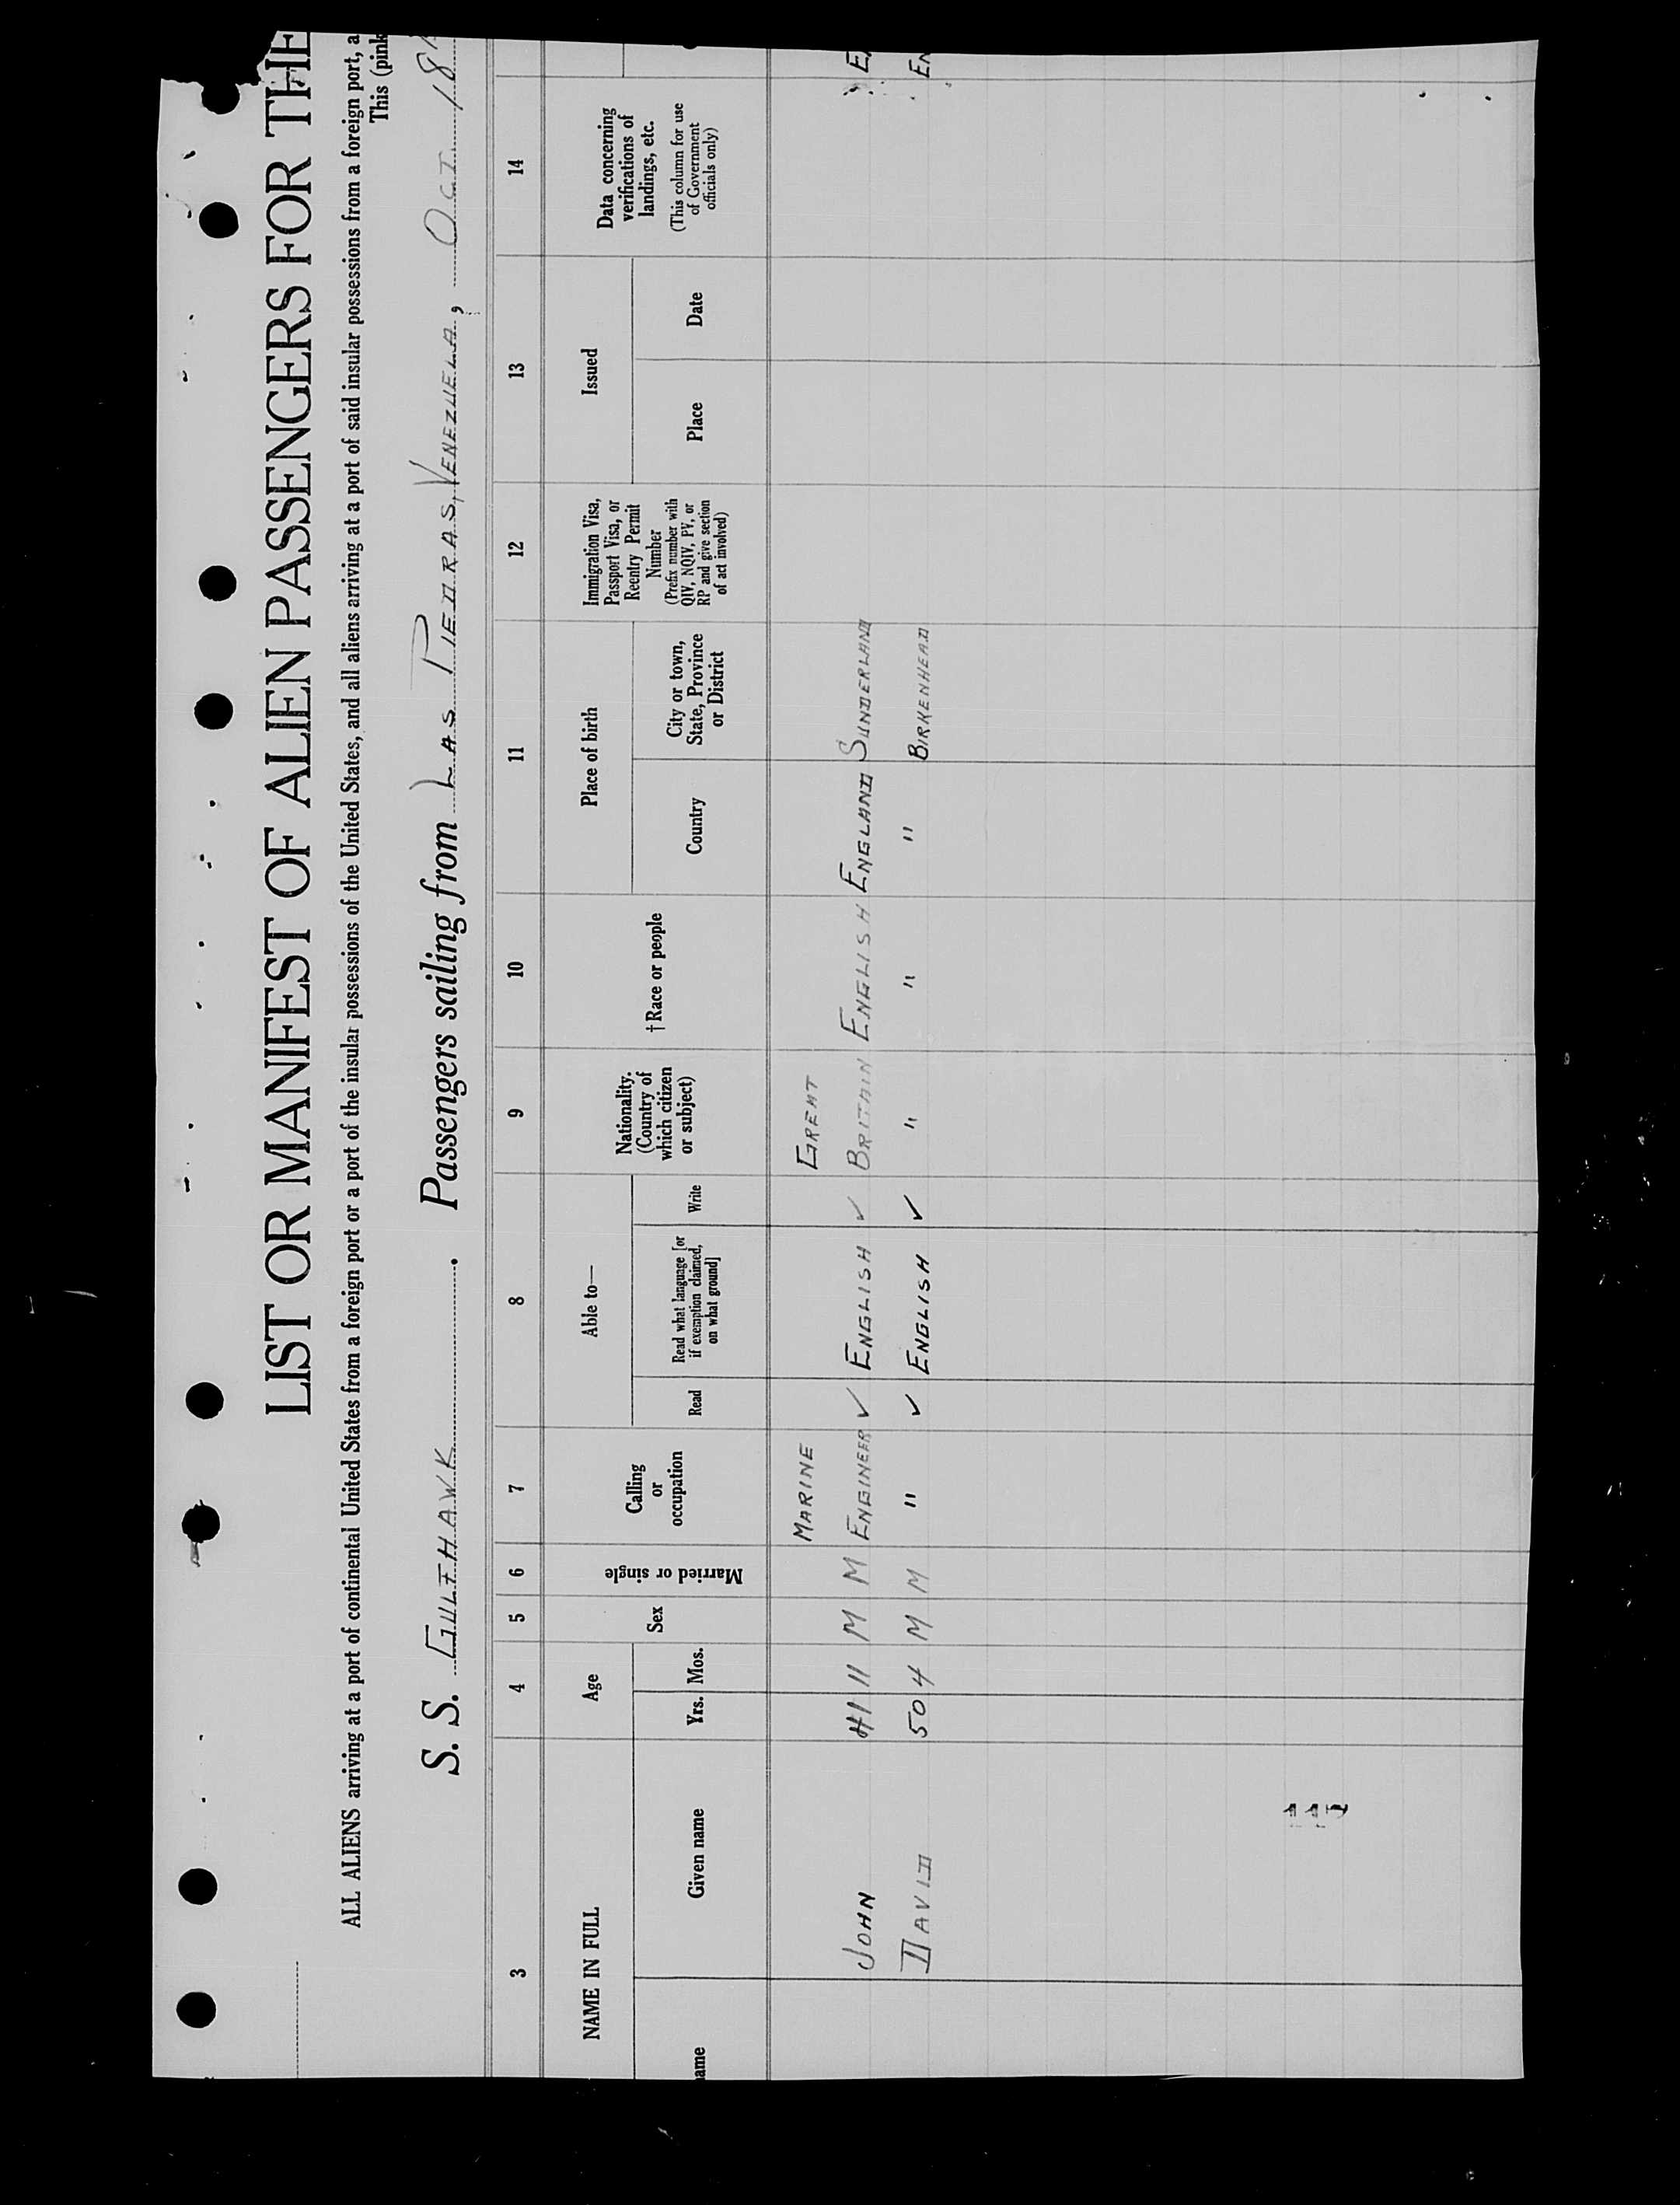 LIST OR MANIFEST OF ALIEN PASSENGERS FOR THE
ALL ALIENS arriving at a port of continental United States from a foreign port or a port of the insular possessions of the United States, and all aliens arriving at a port of said insular possessions from a foreign port, a
This (pink
S. S. GULFHAWK. Passengers sailing from LAS PIEDRAS, VENEZUELA, OCT. 18
3 4 5 6 7 8 9 10 11 12 13 14
NAME IN FULL
ame
Given name
Age
Yrs. Mos.
Sex
Married or single
Calling
or
occupation
Able to—
Read
Read what language [or
if exemption claimed,
on what ground]
Write
Nationality.
(Country of
which citizen
or subject)
†Race or people
Place of birth
Country
City or town,
State, Province
or District
Immigration Visa,
Passport Visa, or
Reentry Permit
Number
(Prefix number with
QIV, NQIV, PV, or
RP and give section
of act involved)
Issued
Place
Date
Data concerning
verifications of
landings, etc.
(This column for use
of Government
officials only)
MARINE GREAT
JOHN 41 11 M M ENGINEER ✓ ENGLISH ✓ BRITAIN ENGLISH ENGLAND SUNDERLAND
DAVID 50 4 M M " ✓ ENGLISH ✓ " " " BIRKENHEAD